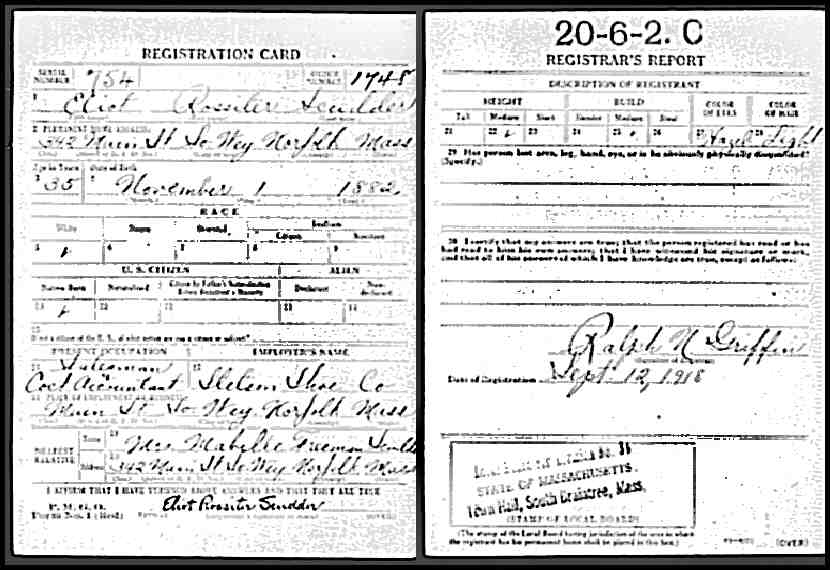 REGISTRATION CARD
SERIAL NUMBER 754 ORDER NUMBER 1748
1 Eliot Rossiter Scudder
2 PERMANENT HOME ADDRESS:
342 Main St So Wey Norfolk Mass
Age in Years Date of Birth
3 35 4 November 1 1882
RACE
White Negro Oriental Indian
Citizen Noncitizen
5 6 7 8 9
U. S. CITIZEN ALIEN
Native Born Naturalized Citizen by Father's Naturalization Before Registrant's Majority Declarant Non-declarant
10 11 12 13 14
15
If not a citizen of the U. S., of what nation are you a citizen or subject?
PRESENT OCCUPATION EMPLOYER'S NAME
16 Salesman 17
Cost Accountant Shoe Co
18 PLACE OF EMPLOYMENT OR BUSINESS:
Main St So Wey. Norfolk Mass
NEAREST RELATIVE
Name 19 Mrs. Mabelle Freeman Scudder
Address 20 342 Main St So Wey Norfolk Mass
I AFFIRM THAT I HAVE VERIFIED ABOVE ANSWERS AND THAT THEY ARE TRUE
P. M. G. O.
Form No. 1 (Red) Eliot Rossiter Scudder
20-6-2. C
REGISTRAR'S REPORT
DESCRIPTION OF REGISTRANT
HEIGHT BUILD COLOR OF EYES COLOR OF HAIR
Tall Medium Short Slender Medium Stout
21 22 23 24 25 26 27 Hazel 28 Light
29 Has person lost arm, leg, hand, eye, or is he obviously physically disqualified?
(Specify.)
30 I certify that my answers are true; that the person registered has read or has
had read to him his own answers; that I have witnessed his signature or mark,
and that all of his answers of which I have knowledge are true, except as follows:
Ralph N Griffin
Date of Registration Sept. 12, 1918
STATE OF MASSACHUSETTS.
Town Hall, South Braintree, Mass.
(STAMP OF LOCAL BOARD)
(The stamp of the Local Board having jurisdiction of the area in which
the registrant has his permanent home shall be placed in this box.)
(OVER)